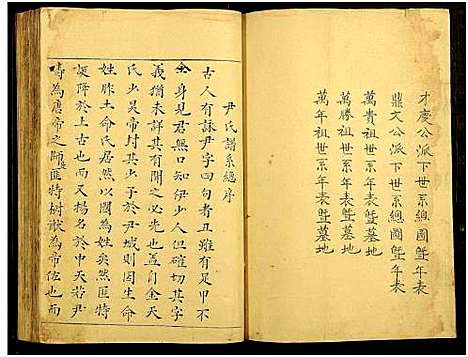 才慶公派下世系總圖暨年表
鼎文公派下世系總圖暨年表
萬貴祖世系年表暨墓地
萬勝祖世系年表暨墓地
萬年祖世系年表暨墓地
尹氏譜系總序
古人有詠尹字一句者丑雖有足甲不
全身見君無口知伊少人但確切其字
義猶未詳其有開之必先也蓋自金天
氏少吳帝封其少子於尹城則因生命
姓胙土命氏居然以國為姓矣然匪特
誕降於上古也而又揚名於中天若尹
壽為唐帝之師匪特樹猷為帝佐也而